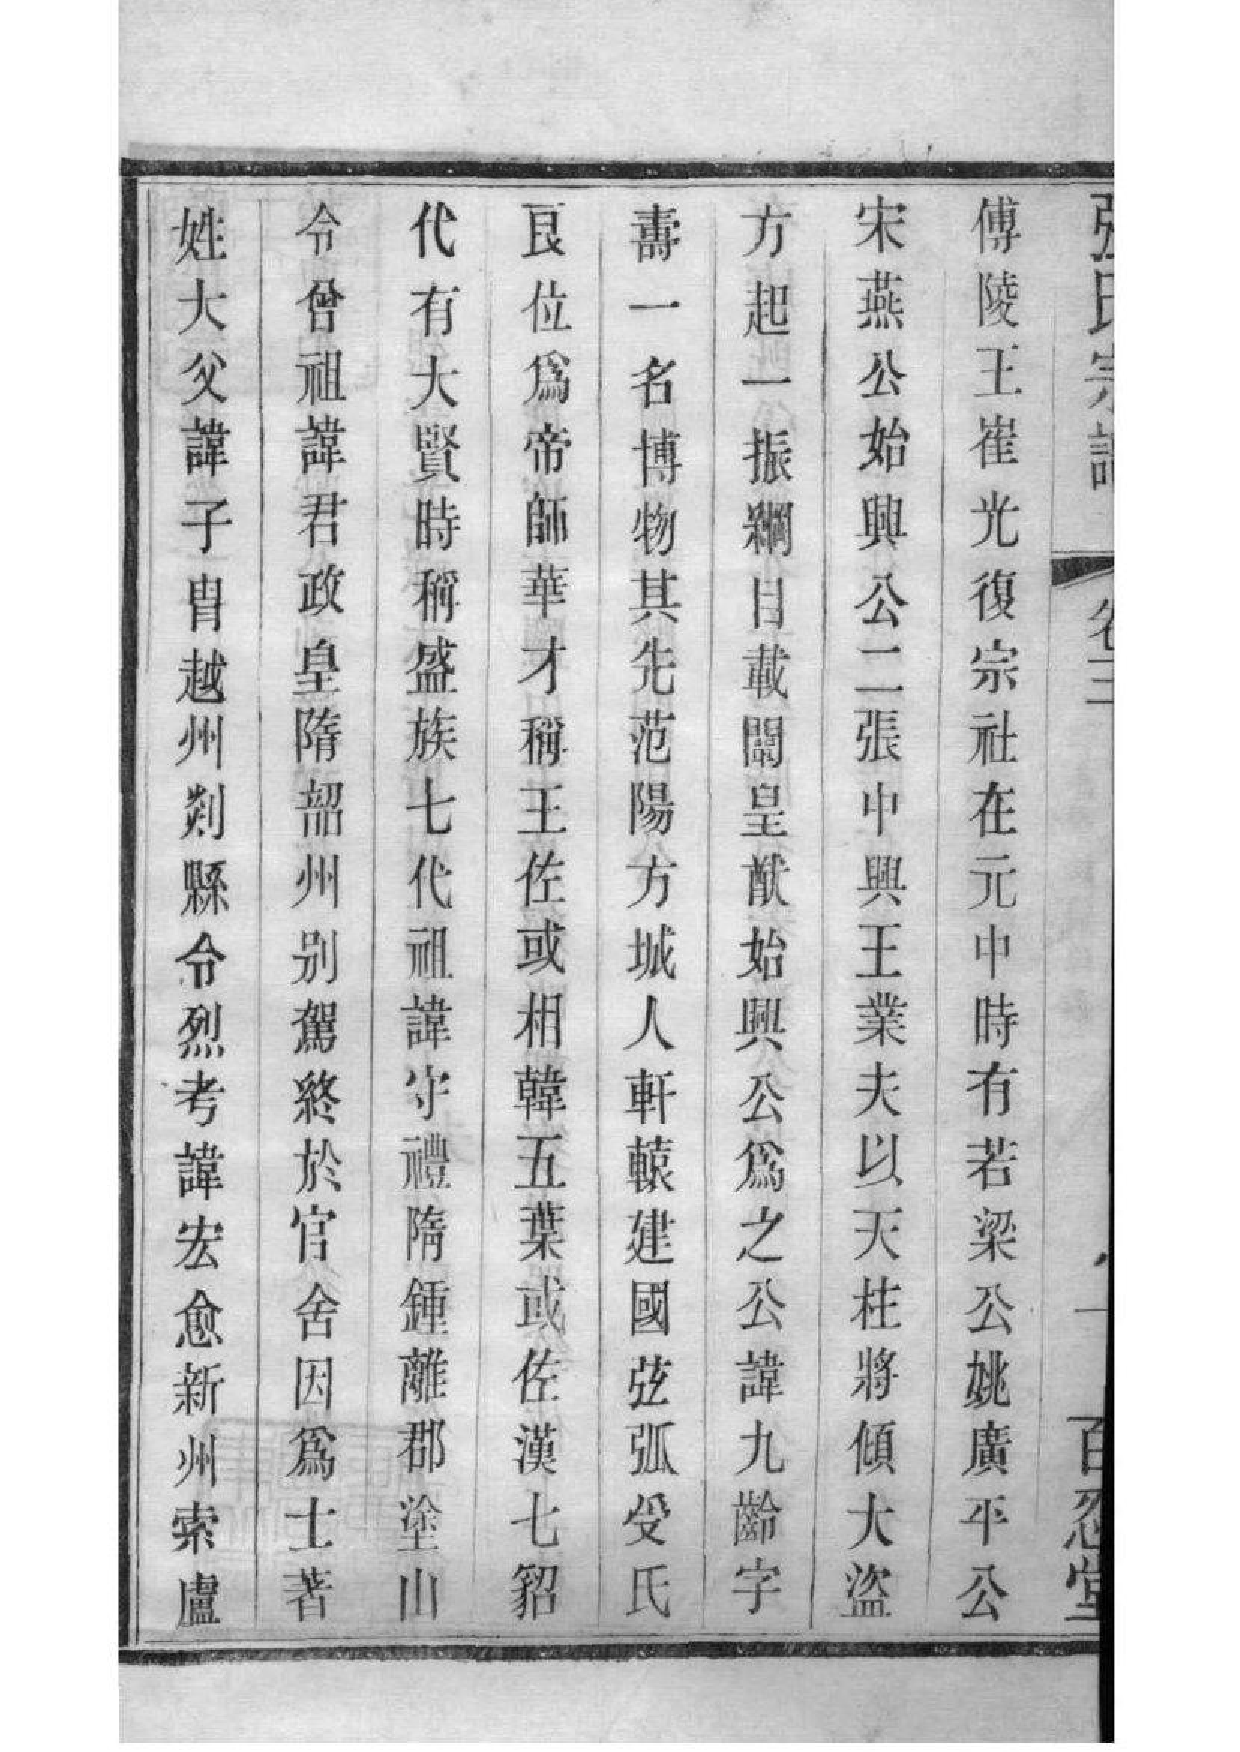 張氏宗譜 卷二 百忍堂
傅陵王崔光復宗社在元中時有若梁公姚廣平公
宋燕公始興公二張中興王業夫以天柱將傾大盜
方起一振綱目載闢皇猷始興公爲之公諱九齡字
壽一名博物其先范陽方城人軒轅建國弦弧受氏
良位爲帝師華才稱王佐或相韓五葉或佐漢七貂
代有大賢時稱盛族七代祖諱守禮隋鍾離郡塗山
令曾祖諱君政皇隋韶州别駕終於官舍因爲士著
姓大父諱子冑越州剡縣令烈考諱宏愈新州索盧